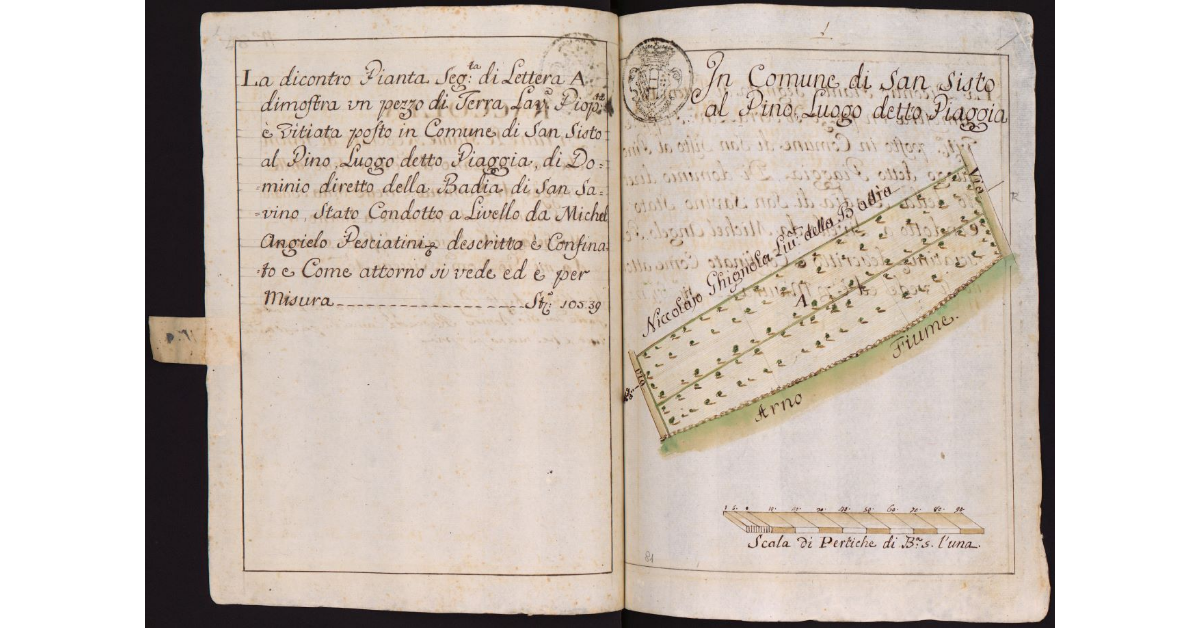 La dicontro Pianta Seg:ta di Lettera A
dimostra vn pezzo di Terra Lav:a Piop:ta
è Vitiata posto in Comune di San Sisto
al Pino, Luogo detto Piaggia, di Do=
minio diretto della Badia di San Sa=
vino, Stato Condotto a Livello da Michel
Angiolo Pesciatini descritto è Confina=
to e Come attorno si vede ed è per
Misura Str: 105.39
1
In Comune di San Sisto
al Pino, Luogo detto Piaggia
Via
Niccolajo Ghignola Liv: della Badia
A
via
Arno
Fiume.
10. 20. 30. 40. 50. 60. 70. 80. 90.
Scala di Pertiche di B:a 5. l'una.